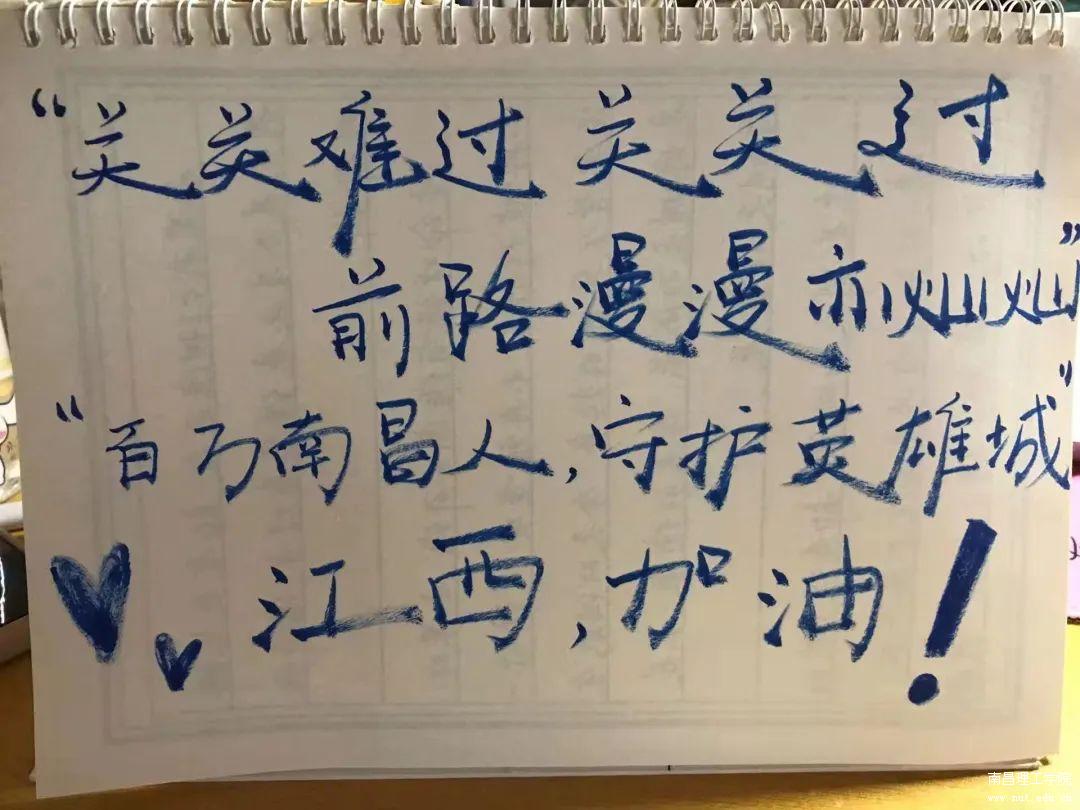 “关关难过关关过
前路漫漫亦灿灿”
“百万南昌人,守护英雄城”
江西,加油!
南昌理工学院
www.nut.edu.cn